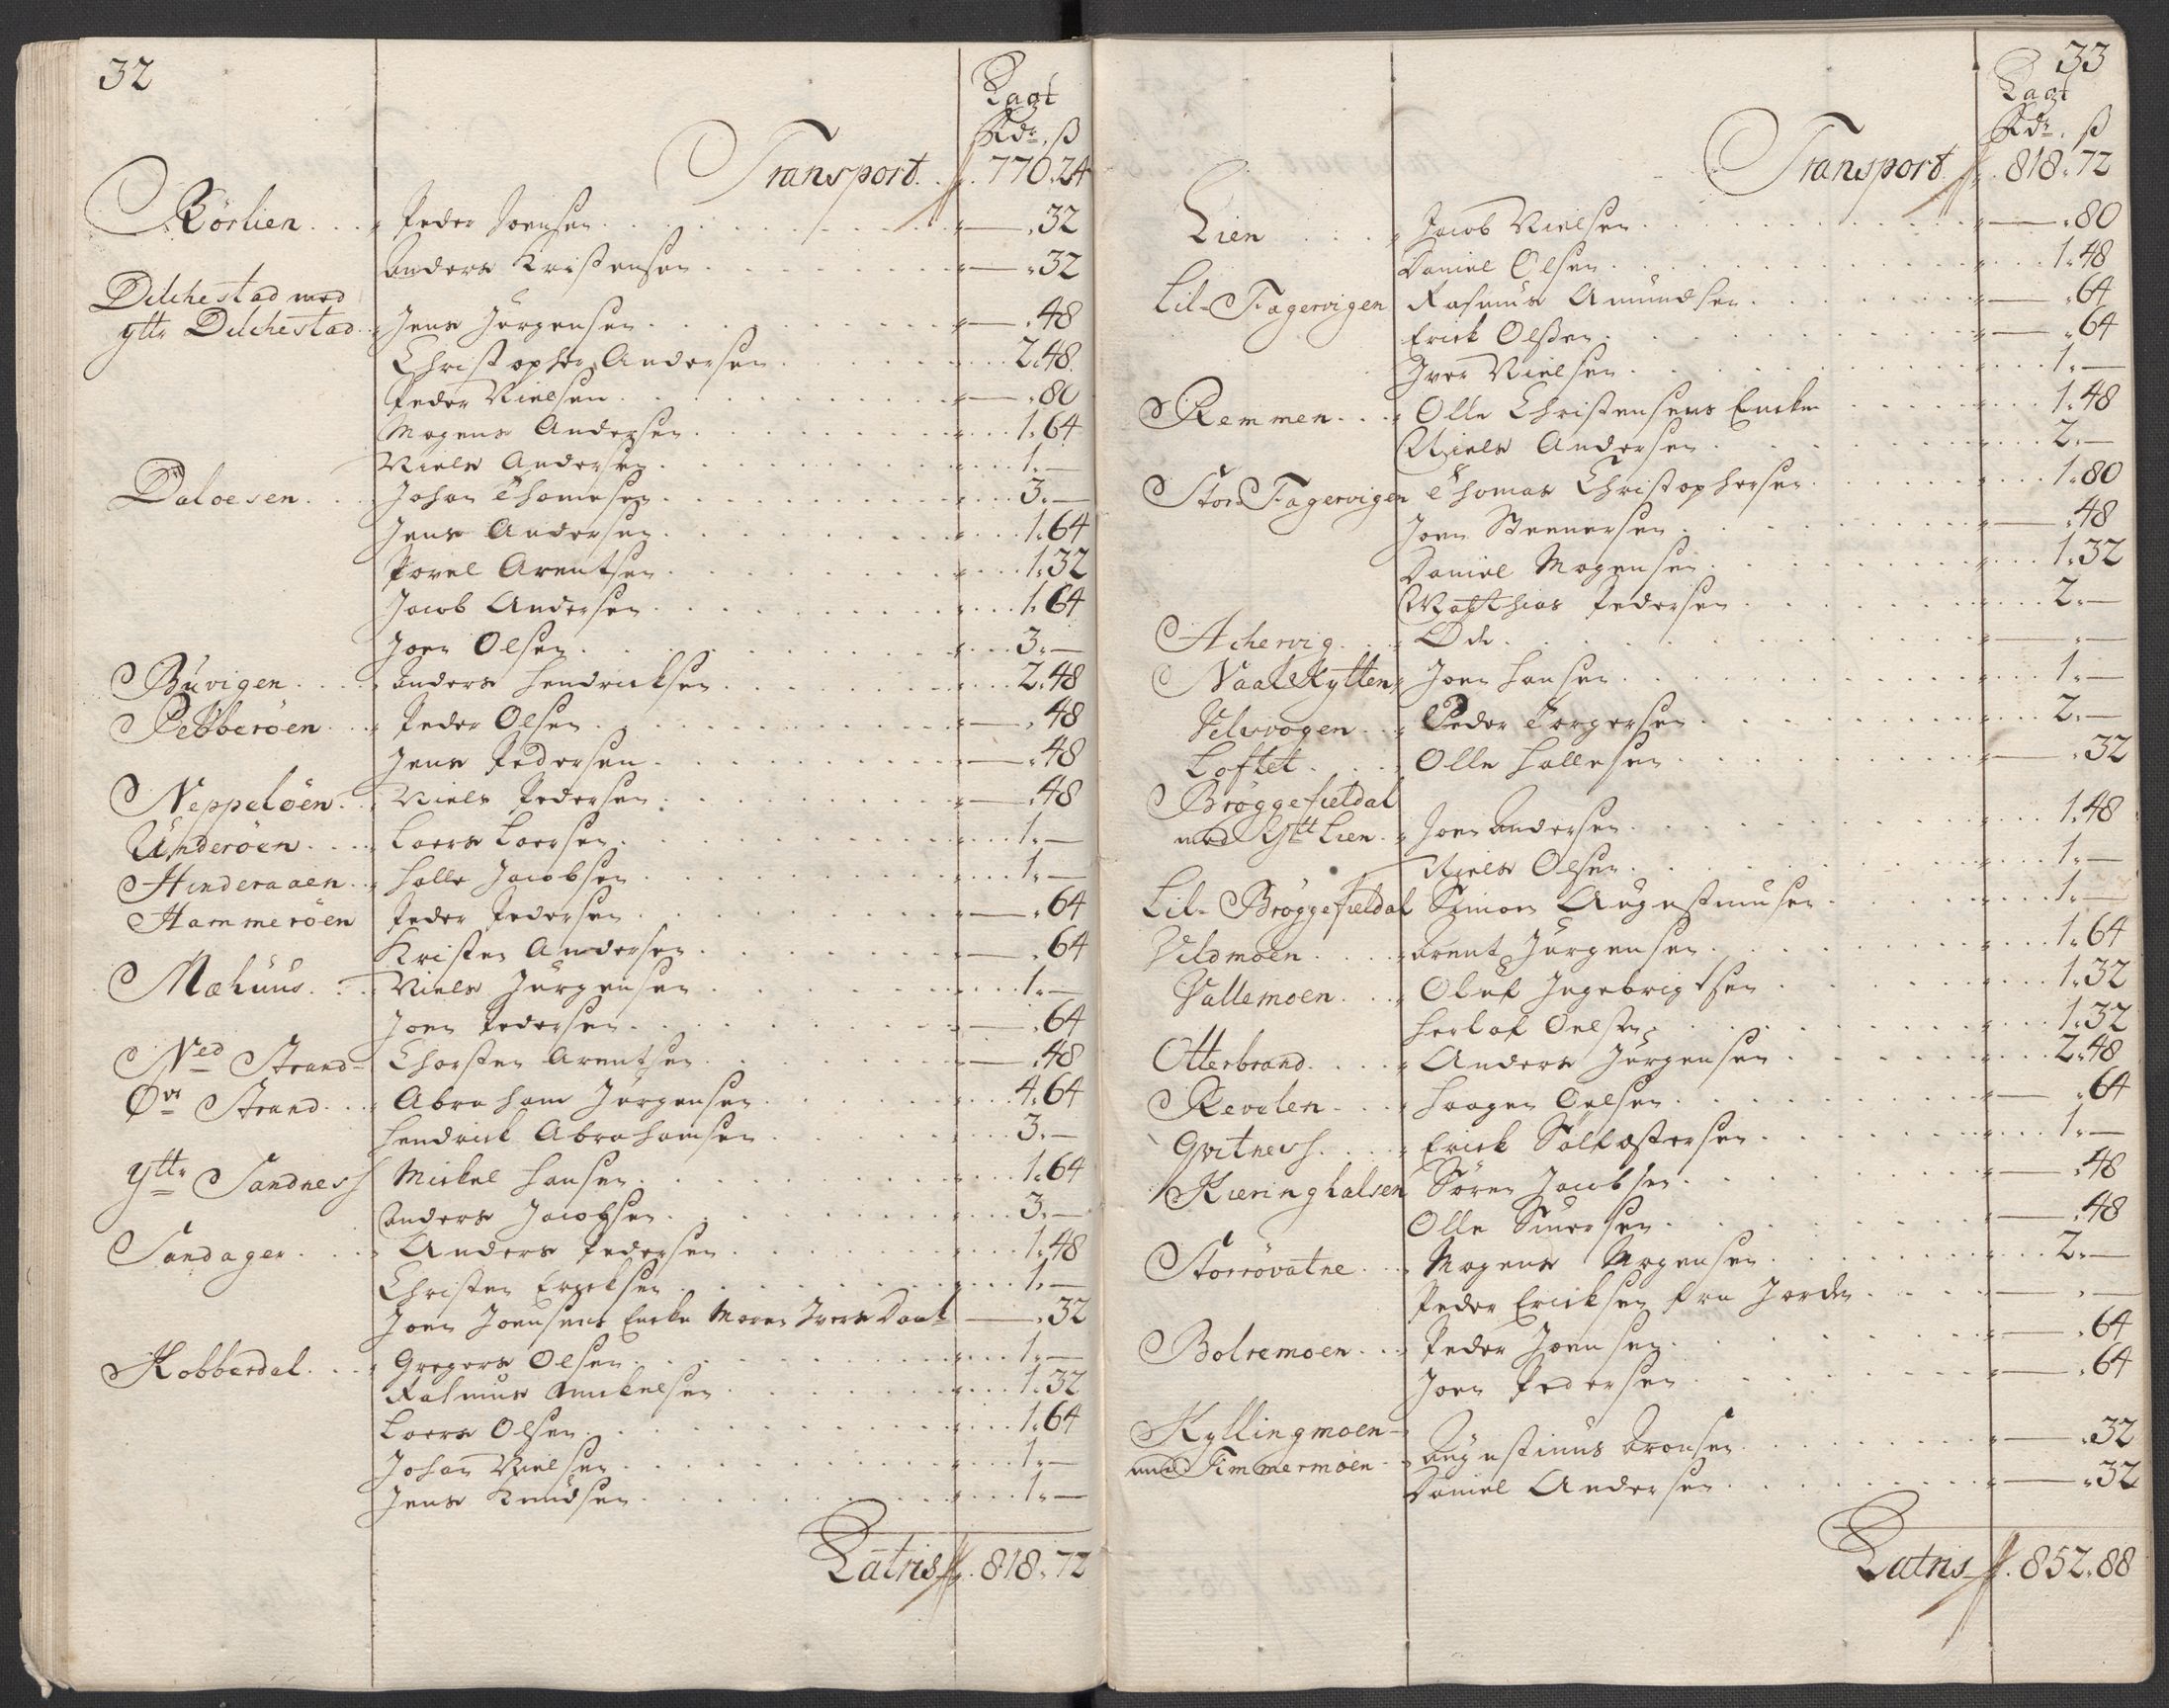 32
Lagt
Rdr. ß
Transport. 770.24
Rörlien Peder Joensen .32
Anders Kristensen .32
Dilchestad med
yttr Dilchestad Jens Jörgensen .48
Christopher Andersen 2.48
Peder Nielsen .80
Mogens Andersen 1.64
Niels Andersen 1.—
Daloesen Johan Thomesen 3.—
Jens Andersen 1.64
Povel Arentsen 1.32
Jacob Andersen 1.64
Joen Olsen 3.—
Buvigen Anders Hendricksen 2.48
Pebberöen Peder Olsen .48
Jens Pedersen .48
Neppelöen Niels Pedersen .48
Underöen Laers Laersen 1.—
Hinderaaen Halle Jacobsen 1.—
Hammeröen Peder Pedersen .64
Kristen Andersen .64
Mæhuus Niels Jürgensen 1.—
Joen Pedersen .64
Ned Strand Thorsten Arentsen .48
Øvr Strand Abraham Jörgensen 4.64
Hendrick Abrahamsen 3.—
yttr Sandnesh Mickel Hansen 1.64
Anders Jacobsen 3.—
Sandager Anders Pedersen 1.48
Christen Ericksen 1.—
Joen Joensens Encke Maren Ivers Daat .32
Kobberdal Gregers Olsen 1.—
Rasmus Amickelsen 1.32
Laers Olsen 1.64
Johan Nielsen 1.—
Jens Knudsen 1.—
Latris 818.72
33
Lagt
Rdr. ß
Transport 818.72
Lien Jacob Nielsen .80
Daniel Olsen 1.48
Lil-Fagervigen Rasmus Amundsen .64
Erick Olsen .64
Iver Nielsen 1.—
Remmen Olle Christensens Encke 1.48
Niels Andersen 2.—
Stor Fagervigen Thomas Christophersen 1.80
Joen Steenersen .48
Daniel Mogensen 1.32
Matthias Pedersen 2.—
Achervig Öde —.—
Naalskytten Joen Hansen 1.—
Velvvogen Peder Torgersen 2.—
Loftet Olle Hallesen .32
Bröggefieldal
med Ytt Lien Joen Andersen 1.48
Niels Olsen 1.—
Lil-Bröggefieldal Simon Augustinusen 1.—
Vildmoen Arent Jürgensen 1.64
Vallemoen Oluf Ingebrigtsen 1.32
Herlof Oelsen 1.32
Otterbrand Anders Jürgensen 2.48
Revelen Haagen Oelsen .64
Qvitnesh Erick Solfæstersen 1.—
Kieringhalsen Sören Jacobsen .48
Olle Siversen .48
Storrövatne Mogens Mogensen 2.—
Peder Ericksen fra Jorden —.—
Bolremoen Peder Joensen .64
Joen Pedersen .64
Kyllingmoen
med Timmermoen Augustinus Aronsen .32
Daniel Andersen .32
Latris 852.88